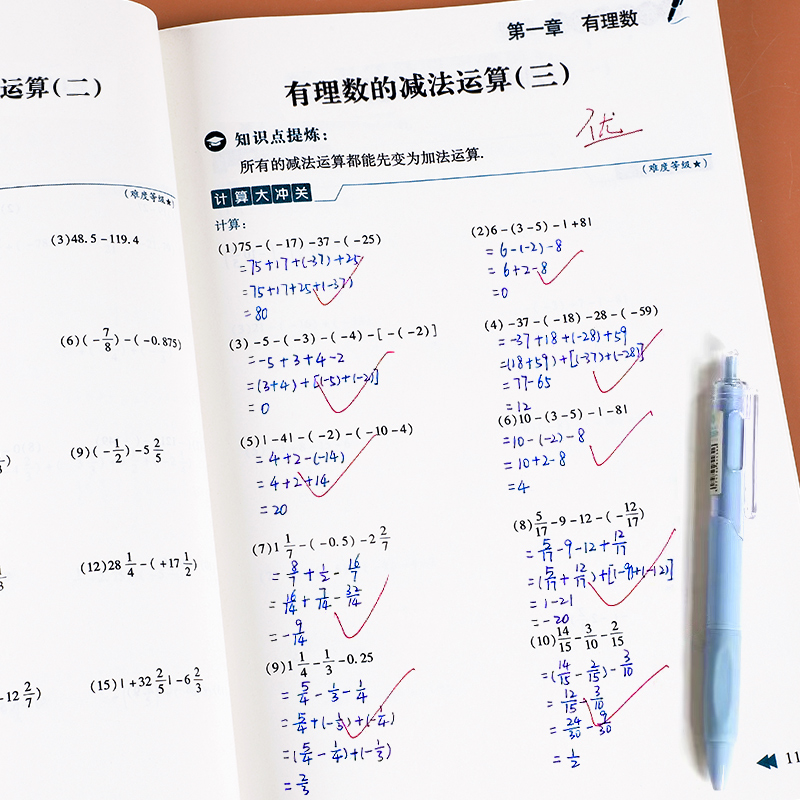 运算(二)
(难度等级★)
(3)48.5-119.4
(6)(-7/8)-(-0.875)
(9)(-1/2)-5 2/5
(12)28 1/4-(+17 1/2)
-12 2/7)
(15)|+32 2/5|-6 2/3
第一章 有理数
有理数的减法运算(三)
优
知识点提炼:
所有的减法运算都能先变为加法运算.
(难度等级★)
计算大冲关
计算:
(1)75-(-17)-37-(-25)
=75+17+(-37)+25
=75+17+25+(-37)
=80
(2)6-(3-5)-|+8|
=6-(-2)-8
=6+2-8
=0
(3)-5-(-3)-(-4)-[-(-2)]
=-5+3+4-2
=(3+4)+[(-5)+(-2)]
=0
(4)-37-(-18)-28-(-59)
=-37+18+(-28)+59
=(18+59)+[(-37)+(-28)]
=77-65
=12
(5)|-4|-(-2)-(-10-4)
=4+2-(-14)
=4+2+14
=20
(6)10-(3-5)-|-8|
=10-(-2)-8
=10+2-8
=4
(7)1 1/7-(-0.5)-2 2/7
=8/7+1/2-16/7
=16/14+7/14-32/14
=-9/14
(8)5/17-9-12-(-12/17)
=5/17-9-12+12/17
=(5/17+12/17)+[(-9)+(-12)]
=1-21
=-20
(9)1 1/4-1/3-0.25
=5/4-1/3-1/4
=5/4+(-1/3)+(-1/4)
=(5/4-1/4)+(-1/3)
=2/3
(10)14/15-3/10-2/15
=(14/15-2/15)-3/10
=12/15-3/10
=24/30-9/30
=1/2
11